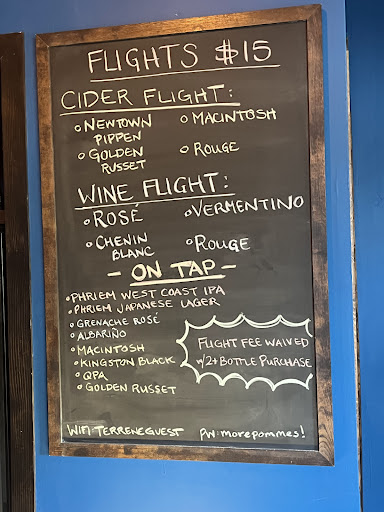 FLIGHTS $15
CIDER FLIGHT:
• NEWTOWN PIPPEN
• MACINTOSH
• GOLDEN RUSSET
• ROUGE
WINE FLIGHT:
• ROSÉ
• VERMENTINO
• CHENIN BLANC
• ROUGE
- ON TAP -
• PHRIEM WEST COAST IPA
• PHRIEM JAPANESE LAGER
• GRENACHE ROSÉ
• ALBARIÑO
• MACINTOSH
• KINGSTON BLACK
• QPA
• GOLDEN RUSSET
FLIGHT FEE WAIVED
w/2+ BOTTLE PURCHASE
WIFI: TERRENEGUEST
PW: morepommes!